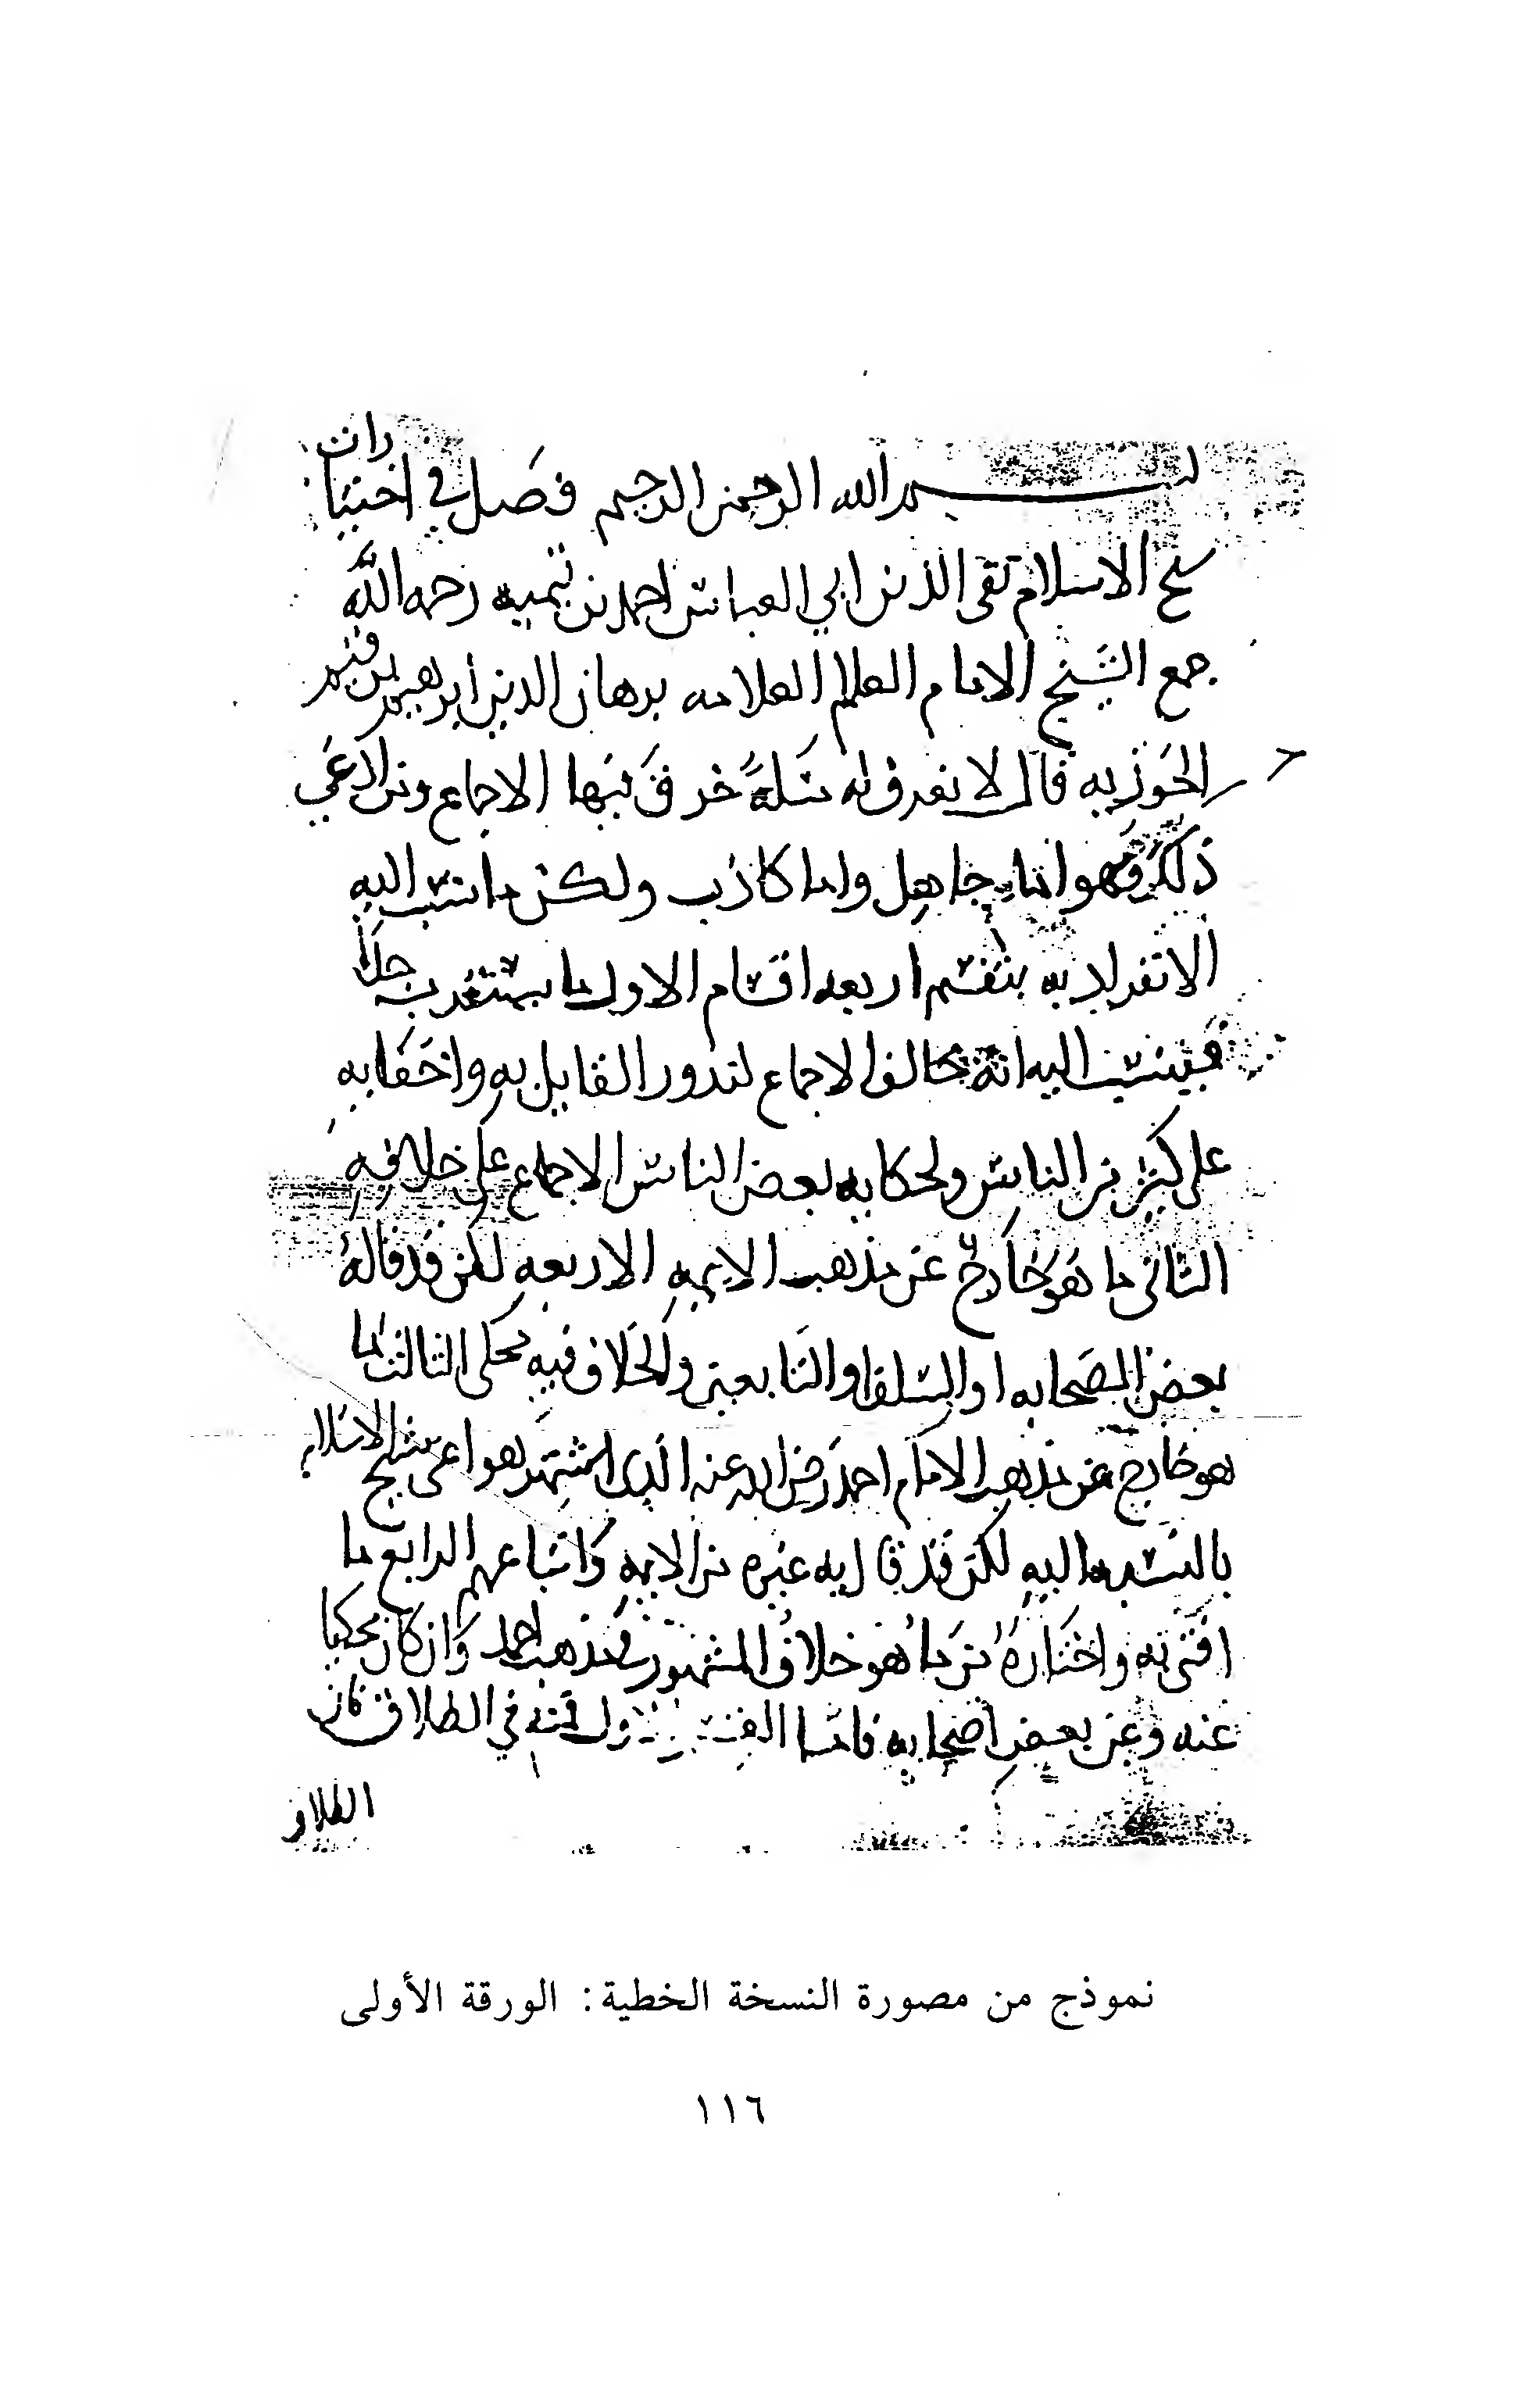 بسم الله الرحمن الرحيم فصل في اختيارات
شيخ الاسلام تقي الدين ابي العباس احمد بن تيميه رحمه الله
جمع الشيخ الامام العالم العلامه برهان الدين ابرهيم بن قيم
الجوزيه قال لا نعرف له مسئلةً خرق فيها الاجماع ومن ادعي
ذلك فهو اما جاهل واما كاذب ولكن ما نسب اليه
الانفراد به ينقسم اربعه اقسام الاول ما يستغرب جدا
فينسب اليه انه خالف الاجماع لندور القايل به وخفايه
على كثير من الناس ولحكايه بعض الناس الاجماع على خلافه
الثاني ما هو خارج عن مذهب الايمه الاربعه لكن قد قاله
بعض الصحابه او السلف او التابعين والخلاف فيه محكي الثالث ما
هو خارج عن مذهب الامام احمد رضي الله عنه الذي اشتهر هو اعني شيخ الاسلام
بالنسبه اليه لكن قد قال به غيره من الايمه واتباعهم الرابع ما
افتى به واختاره مما هو خلاف المشهور في مذهب احمد وان كان محكيا
عنه وعن بعض اصحابه فاما القسم الاول فمنه في الطلاق فان
الطلاق
نموذج من مصورة النسخة الخطية: الورقة الأولى
١١٦